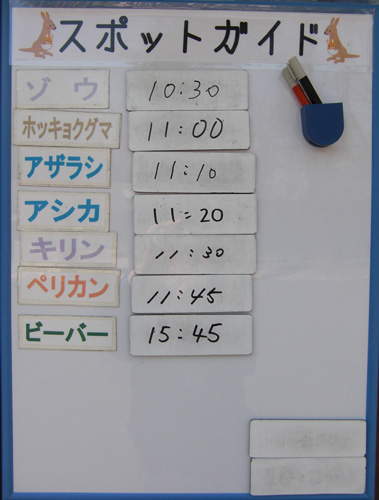 スポットガイド
ゾウ 10:30
ホッキョクグマ 11:00
アザラシ 11:10
アシカ 11:20
キリン 11:30
ペリカン 11:45
ビーバー 15:45